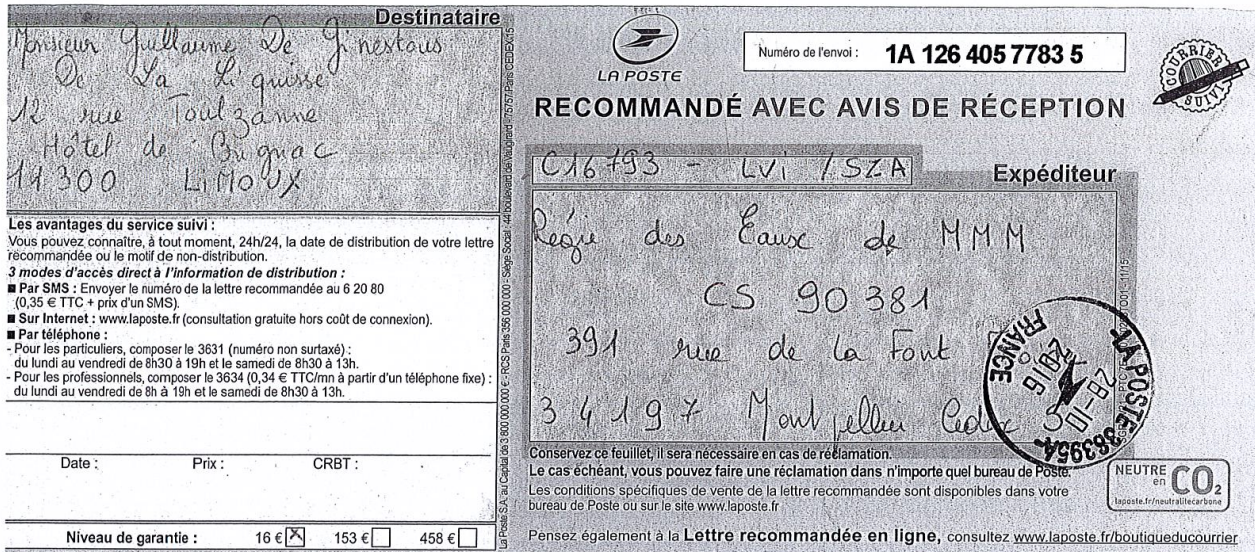 Destinataire
Monsieur Guillaume De Ginestous
De La Liquisse
12 rue Toulzanne
Hôtel de Brignac
11300 LIMOUX
Les avantages du service suivi :
Vous pouvez connaître, à tout moment, 24h/24, la date de distribution de votre lettre
recommandée ou le motif de non-distribution.
3 modes d'accès direct à l'information de distribution :
■ Par SMS : Envoyer le numéro de la lettre recommandée au 6 20 80
(0,35 € TTC + prix d'un SMS).
■ Sur Internet : www.laposte.fr (consultation gratuite hors coût de connexion).
■ Par téléphone :
- Pour les particuliers, composer le 3631 (numéro non surtaxé) :
du lundi au vendredi de 8h30 à 19h et le samedi de 8h30 à 13h.
- Pour les professionnels, composer le 3634 (0,34 € TTC/mn à partir d'un téléphone fixe) :
du lundi au vendredi de 8h à 19h et le samedi de 8h30 à 13h.
Date : Prix : CRBT :
Niveau de garantie : 16 € 153 € 458 €
La Poste S.A. au Capital de 3 800 000 000 € - RCS Paris 356 000 000 - Siège Social : 44 boulevard de Vaugirard - 75757 Paris CEDEX 15
LA POSTE
Numéro de l'envoi : 1A 126 405 7783 5
COURRIER SUIVI
RECOMMANDÉ AVEC AVIS DE RÉCEPTION
C16793 - LVI / SZA
Expéditeur
Régie des Eaux de MMM
CS 90381
391 rue de la Font
34197 Montpellier Cedex 5
LA POSTE 38395A
28-10
2016
FRANCE
Conservez ce feuillet, il sera nécessaire en cas de réclamation.
Le cas échéant, vous pouvez faire une réclamation dans n'importe quel bureau de Poste.
Les conditions spécifiques de vente de la lettre recommandée sont disponibles dans votre
bureau de Poste ou sur le site www.laposte.fr
NEUTRE en CO2
laposte.fr/neutralitecarbone
Pensez également à la Lettre recommandée en ligne, consultez www.laposte.fr/boutiqueducourrier